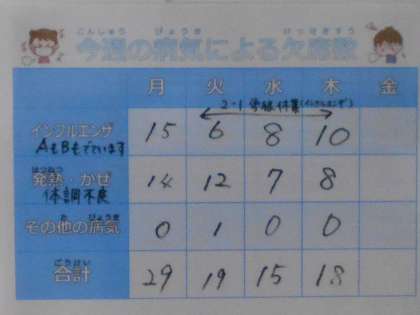 こんしゅう びょうき けっせきすう
今週の病気による欠席数
月 火 水 木 金
2-1 学級休業(インフルエンザ)
インフルエンザ 15 6 8 10
AもBもでています
はつねつ
発熱・かぜ 14 12 7 8
体調不良
た びょうき
その他の病気 0 1 0 0
ごうけい
合計 29 19 15 18